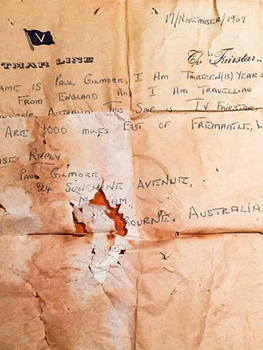 17/November/1969
V
TMAR LINE
T.V "Fairstar"..
AME IS PAUL GILMORE, I AM THIRTEEN (13) YEARS
FROM ENGLAND AND I AM TRAVELLING
AUSTRALIA THIS SHIP IS T.V FAIRSTAR
ARE 3000 MILES EAST OF FREMANTLE, W
REPLY,
PAUL GILMORE
SUNSHINE AVENUE,
BOURNE, AUSTRALIA